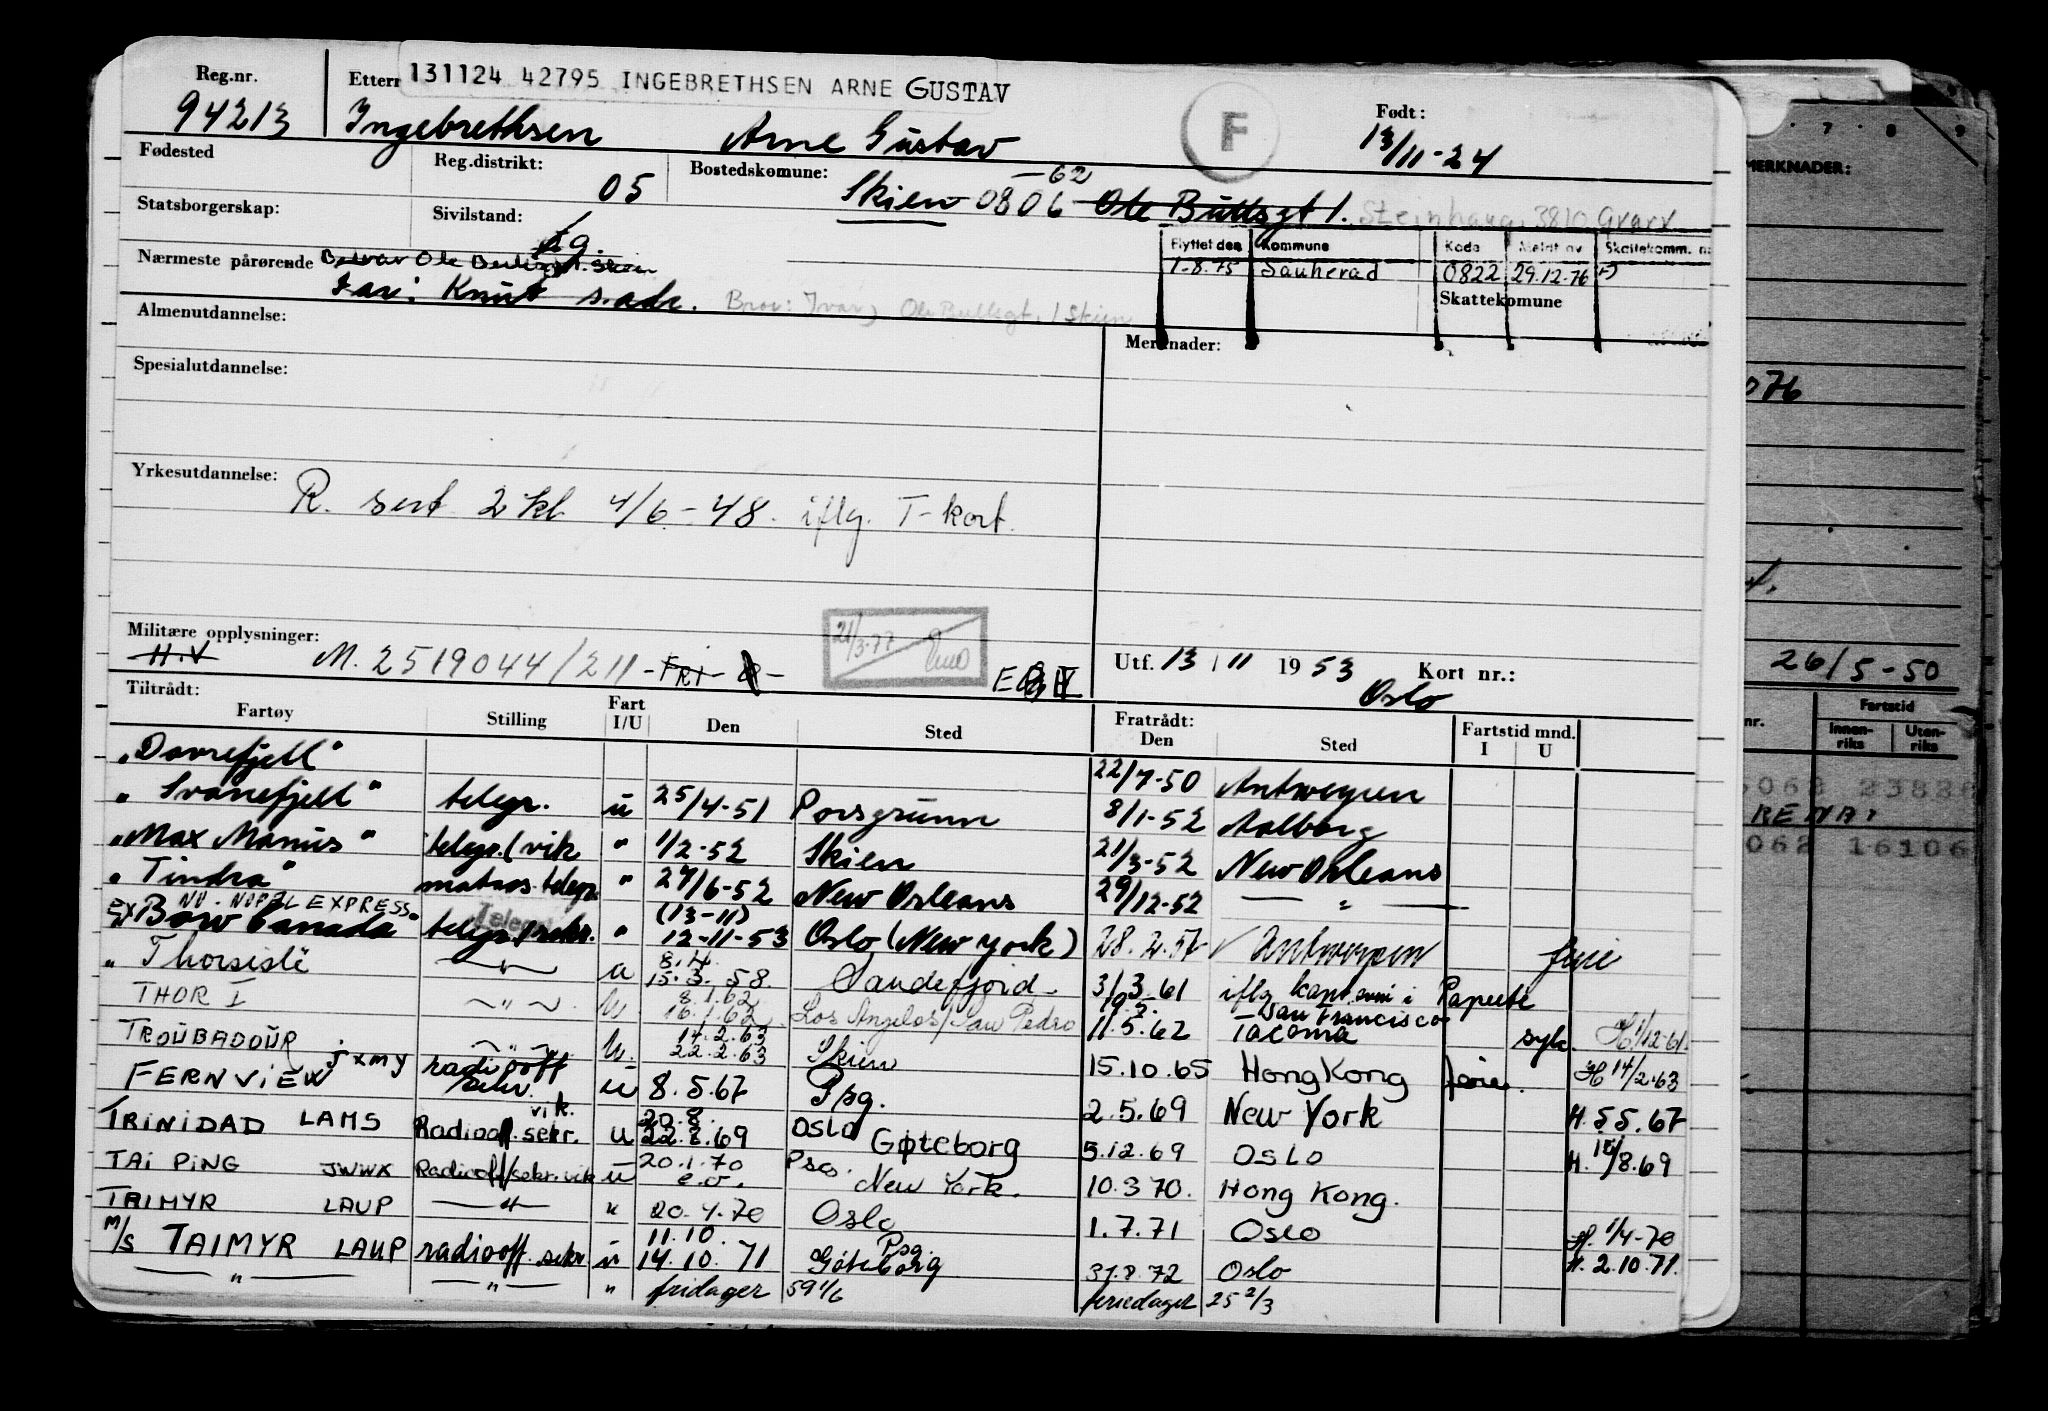 131124 42795 INGEBRETHSEN ARNE GUSTAV
Reg.nr. 94213
Ingebrethsen Arne Gustav
F
Født: 13/11-24
Fødested
Reg.distrikt: 05
Bostedskomune: Skien 0806 -62 Ole Bullsgt 1. Steinhaug, 3810 Gvarv
Statsborgerskap:
Sivilstand: g.
Flyttet den Kommune Kode Meldt av Skattekomm.
1-8.75 Sauherad 0822 29.12.76
Skattekomune
Nærmeste pårørende
Far: Knut s. adr. Bror: Ivar, Ole Bullsgt. 1 Skien
Almenutdannelse:
Merknader:
Spesialutdannelse:
Yrkesutdannelse: R. sert 2 kl 4/6-48. iflg. T-kort.
Militære opplysninger:
H.V M. 2519044/211 - FRI -
21/3-77
Utf. 13/11 1953 Kort nr.:
Oslo
Tiltrådt:
Fartøy Stilling Fart I/U Den Sted Fratrådt: Den Sted Fartstid mnd. I U
"Dovrefjell" 22/7-50 Antwerpen
"Svanefjell" telegr. u 25/4-51 Porsgrunn 8/1-52 Aalborg
"Max Manus" telegr. (vik " 1/2-52 Skien 21/3-52 New Orleans
"Tindra" matros-telegr. " 27/6-52 New Orleans 29/12-52 — " —
EX NU- NOPAL EXPRESS
"Bow Canada" telegr./sekr. " (13-11) 12-11-53 Oslo (New York) 28.2.57 Antwerpen ferie
"Thorsisle — " — u 8.4. 15.3.58. Sandefjord. 31/3.61 iflg. kapt. avm. i Papeete
THOR I — " — u. 8.1.62 16.1.62 Los Angelos/San Pedro 19.5. 11.5.62 San Francisco Tacoma syk. H 1/12-61.
TROUBADOUR — " — u. 14.2.63 22.2.63 Skien 15.10.65 Hong Kong ferie. H 14/2-63
FERNVIEW jxmy radiooff sekr. u 8.5.67 Psg. 2.5.69 New York H. 5.5.67
TRINIDAD LAMS Radiooff. sekr. vik. u 20.8. 22.8.69 Oslo Gøteborg 5.12.69 OSLO H. 18/8.69
TAI PING JWWX Radiooff/sekr. vik u 20.1.70 e.o. Psg. New York. 10.3.70. Hong Kong.
TAIMYR LAUP — " — " 20.4.70 Oslo 1.7.71 Oslo H. 1/4-70
M/S TAIMYR LAUP radiooff. sekr. u 11.10. 14.10.71 Psg. Göteborg 31.8.72 Oslo H. 2.10.71.
— " — — " — " fridager 59 1/6 feriedager 25 2/3
7 8 9
MERKNADER:
076
26/5-50
nr. Fartstid
Innen-riks Uten-riks
062 16106